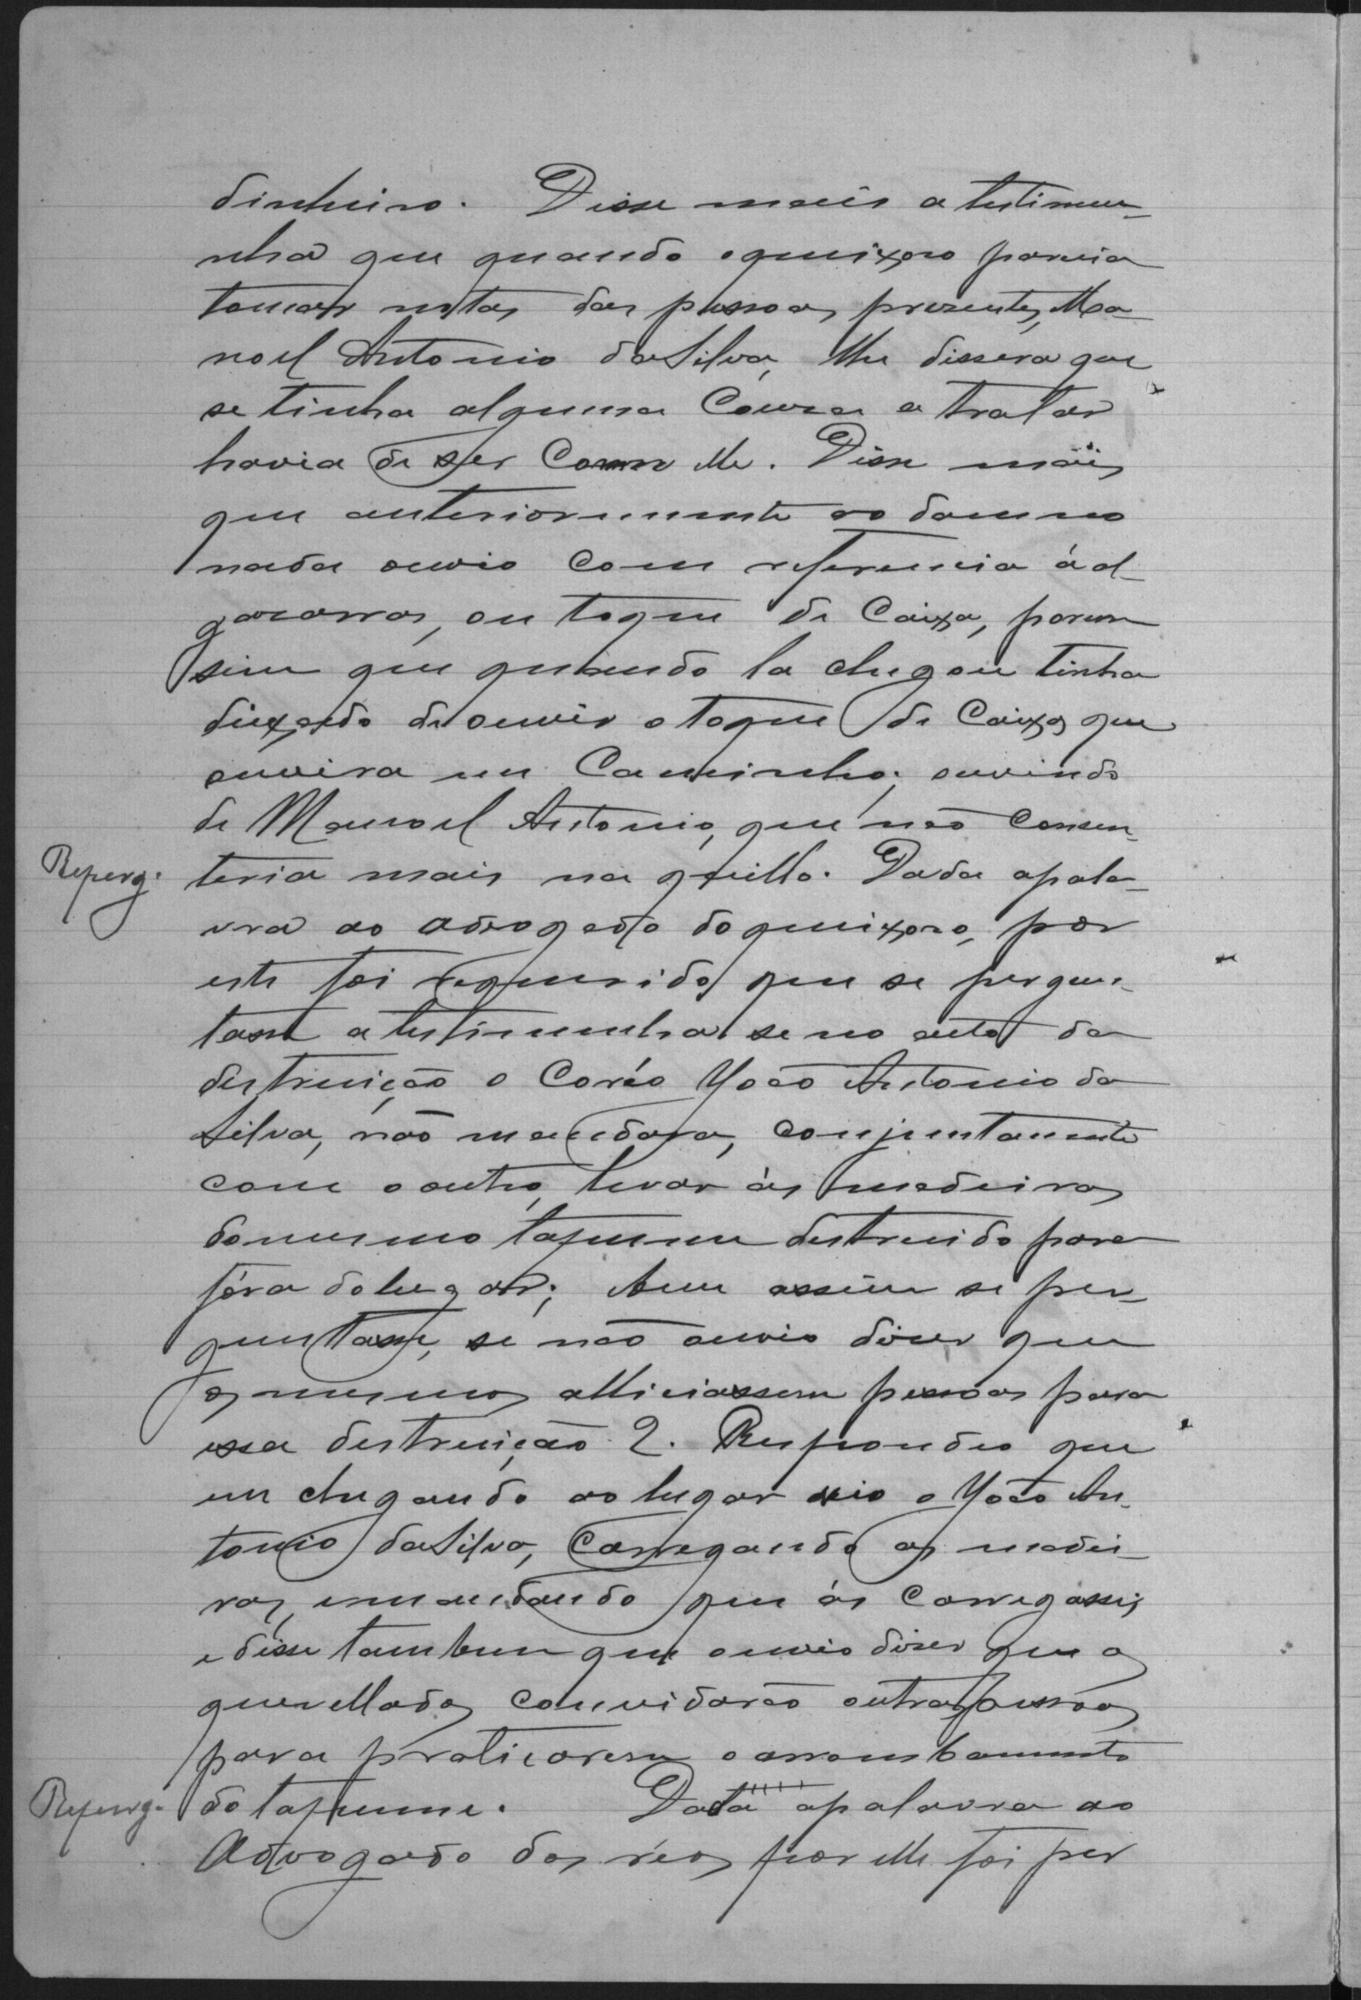 dinheiro. Disse mais a testimu-
nha que quando o queixoso parecia
tomar notas das pessoas prezentes, Ma-
noel Antonio da Silva, lhe dissera que
se tinha alguma couza a tratar
havia de ser com elle. Disse mais
que anteriormente ao damno
nada ouvio com referencia á al-
gazarras, ou toque de Caixa, porem
sim que quando la chegou tinha
deixado de ouvir o toque de Caixa que
ouvira em Caminho; ouvindo
de Manoel Antonio, que não consen-
Reperg. teria mais na quillo. Dada a pala-
vra ao advogado do queixoso, por
este foi requerido que se pergun-
tasse a testimunha se no acto da
destruição o Coréo João Antonio da
Silva, não mandara, conjuntamente
com o outro, levar ás madeiras
do mesmo tapume destruido para
fóra do lugar; bem assim se per-
guntasse, se não ouvio dizer que
os mesmos alliciassem pessoas para
essa destruição?. Respondeo que
em chegando ao lugar vio o João An-
tonio da Silva, Carregando as madei-
ras, e mandando que ás carregassis,
e disse tambem que ouvio dizer que os
querellados convidarão outras pessoas
para praticarem o arrombamento
Reperg. do tapume. Dada a palavra ao
Advogado dos réos, por elle foi per